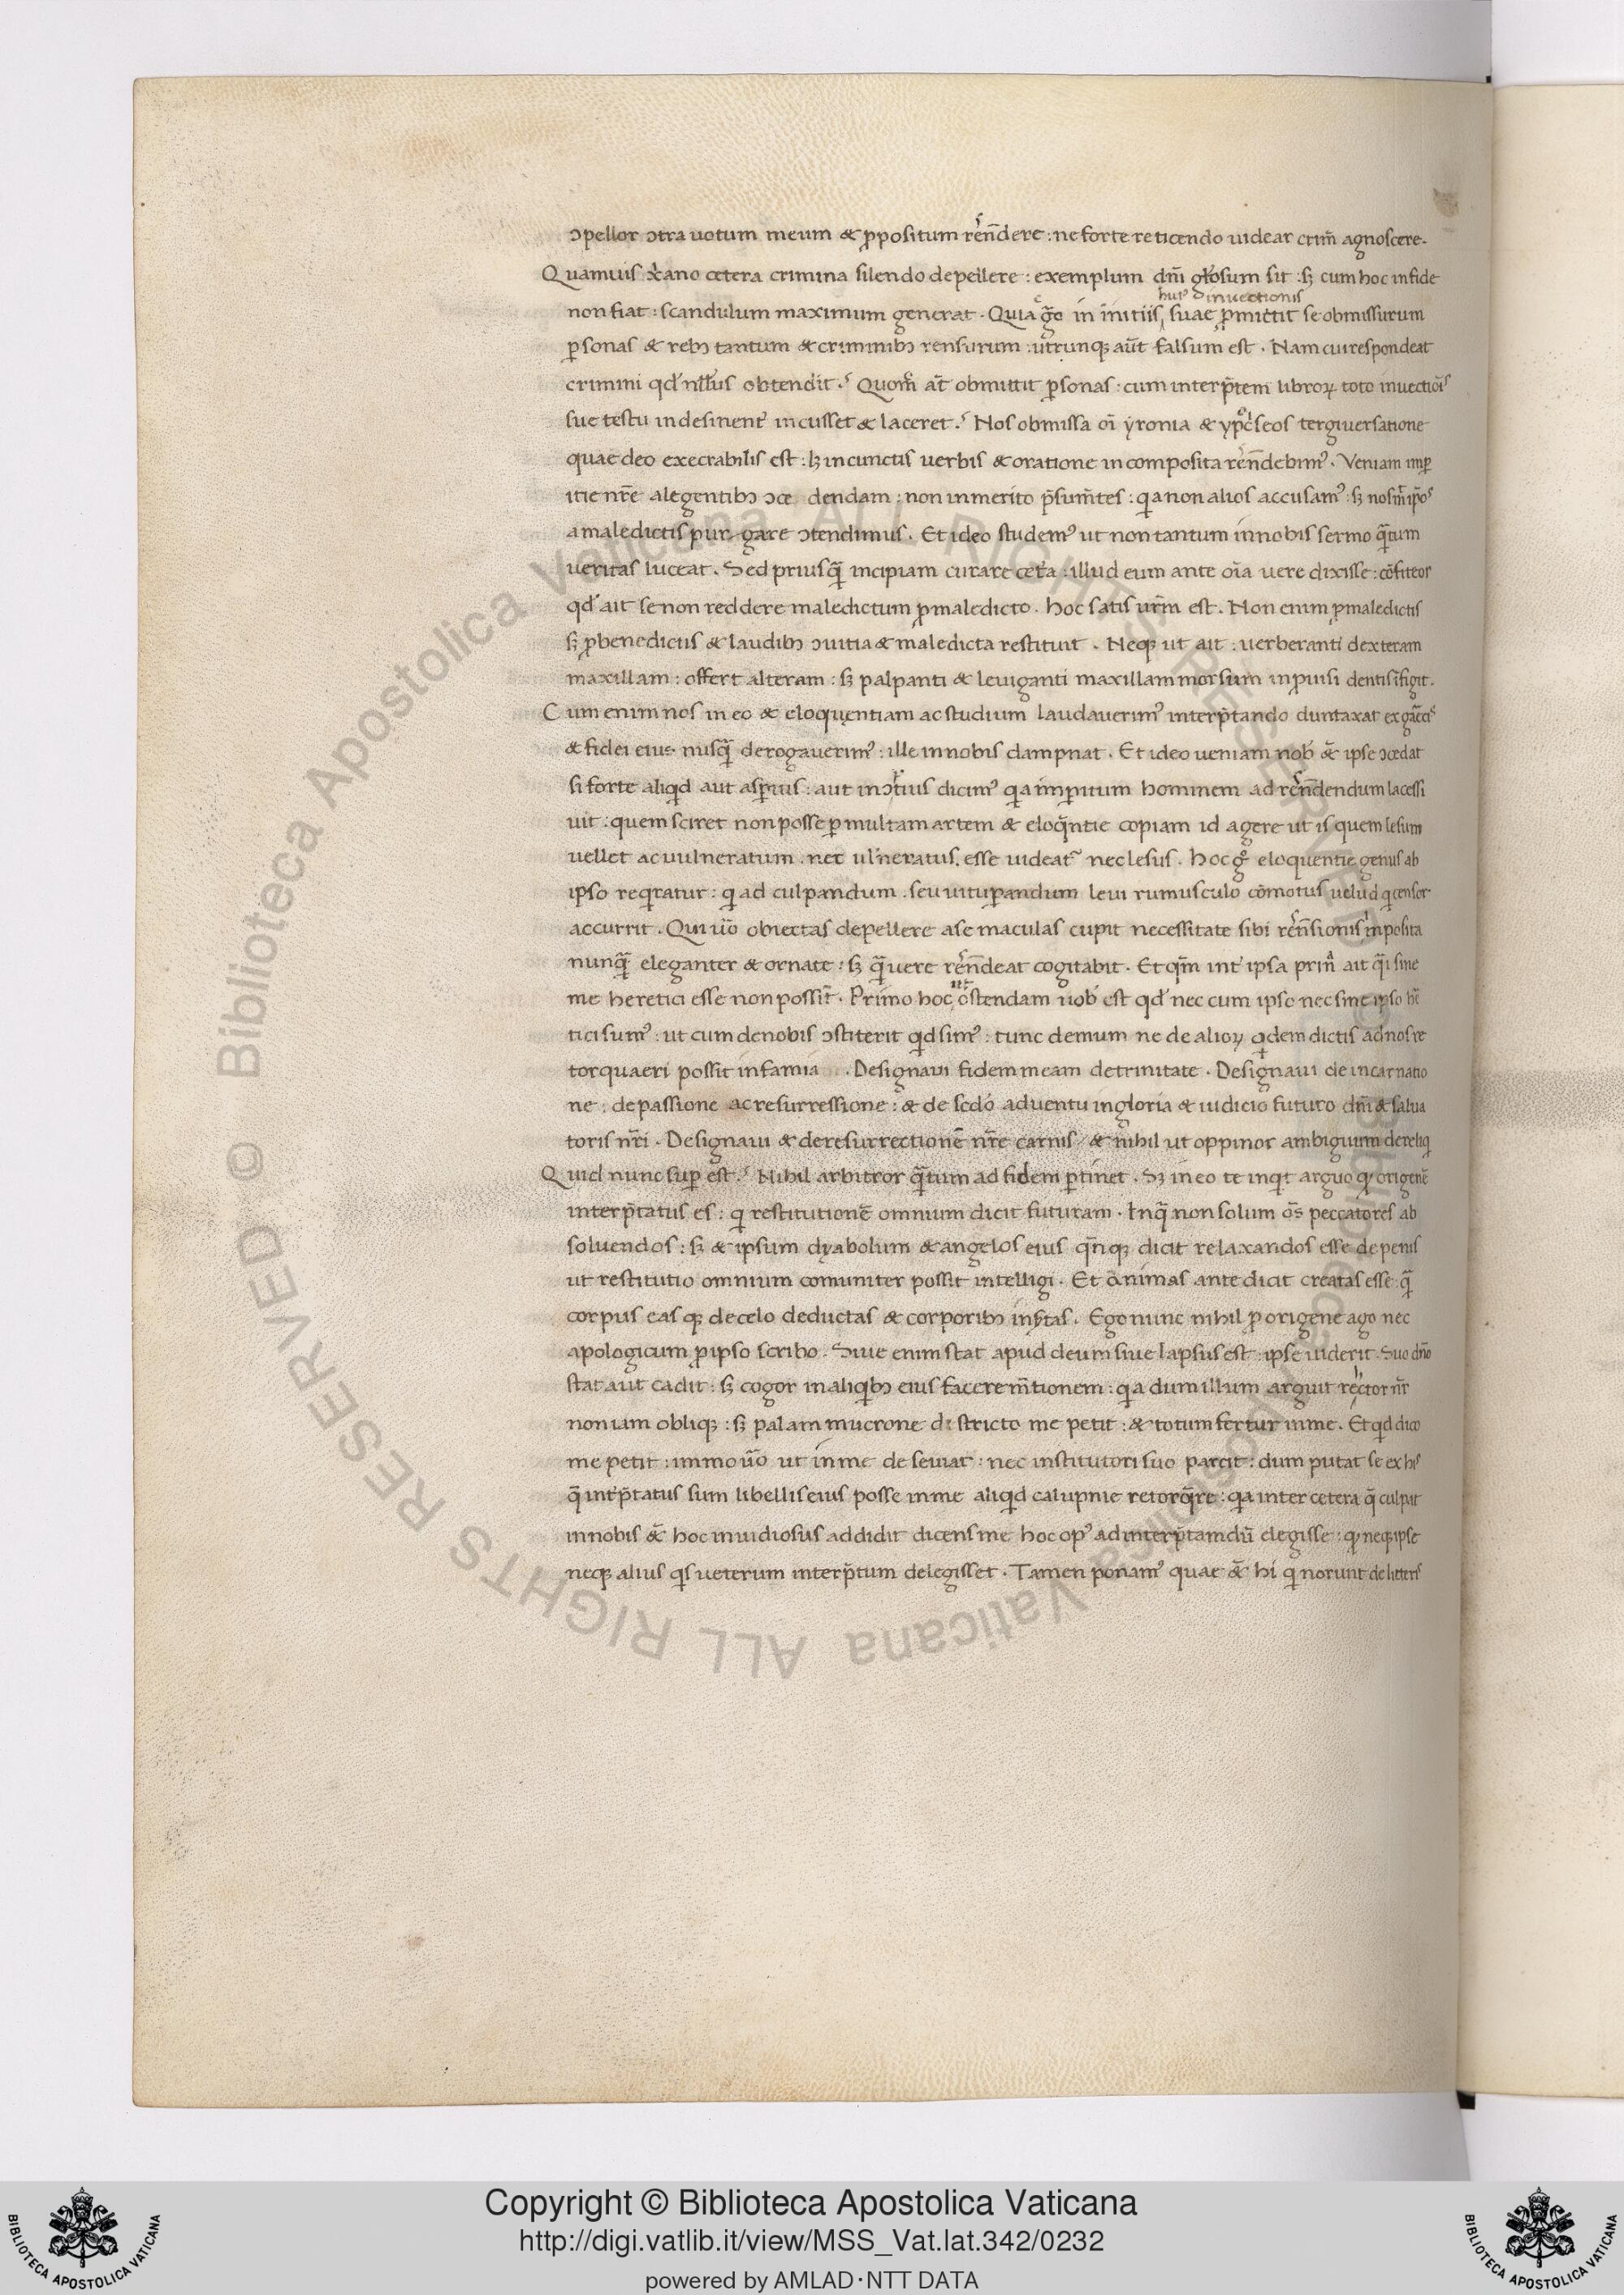 ɔpellor ɔtra uotum meum & ꝓpositum rēn̄dere : ne forte reticendo uidear crim̄ agnoscere.
Quamuis xp̄ano cetera crimina silendo depellere : exemplum dn̄i gl̄osum sit : sꝫ cum hoc in fide
huiꝰ inuectionis
non fiat : scandulum maximum generat . Quia gͦ in initiis suae ꝓmittit se obmissurum
ꝑsonas & rebꝫ tantum & criminibꝫ rensurum : utrunqꝫ aūt falsum est . Nam cui respondeat
crimini qd̄ nullus obtendit . Quom̄ at̄ obmittit ꝑsonas : cum interp̄tem libroꝝ toto inuectiōis
sue testu indesinent̄ incusset & laceret . Nos obmissa oī yronia & ypocseos tergiuersatione
quae deo execrabilis est : lꝫ incunctis uerbis & oratione incomposita rēn̄debimꝰ . Veniam imꝑ
itie nr̄e alegentibꝫ ɔce dendam : non inmerito p̄sum̄tes : qa non alios accusamꝰ : sꝫ nosm̄ ip̄os
a maledictis pur gare ɔtendimus . Et ideo studemꝰ ut non tantum in nobis sermo q̄tum
ueritas luceat . Sed priusq̄ incipiam curare cet̄a : illud eum ante oīa uere dixisse : cōfiteor
qd̄ ait se non reddere maledictum ꝓ maledicto . hoc satis ur̄m est . Non enim ꝓ maledictis
sꝫ ꝓ benedictis & laudibꝫ ɔuitia & maledicta restituit . Neqꝫ ut ait : uerberanti dexteram
maxillam : offert alteram : sꝫ palpanti & leuiganti maxillam morsum inꝓuisi dentis ifigit .
Cum enim nos in eo & eloquentiam ac studium laudauerimꝰ interp̄tando duntaxat ex gręcis
& fidei eius nusq̄ derogauerimꝰ : ille in nobis dampnat . Et ideo ueniam nob̄ & ipse ɔcedat
si forte aliqd aut asꝑius : aut inɔtius dicimꝰ qa imꝑitum hominem ad rēn̄dendum lacessi
uit : quem sciret non posse ꝑ multam artem & eloq̄ntie copiam id agere ut is quem lesum
uellet ac uulneratum . nec ulneratus . esse uideat̄ nec lesus . hoc gͦ eloquentie genus ab
ipso reqratur : q ad culpandum . seu uituꝑandum leui rumusculo cōmotus uelud q censor
accurrit . Qui uō obiectas depellere a se maculas cupit necessitate sibi rēn̄sionis imposita
nunq̄ eleganter & ornate : sꝫ q̄ uere rēn̄deat cogitabit . Et qm̄ int̄ ipsa prim̄ ait q̄i sine
me heretici esse non possit̄ . Primo hoc ostendam uob̄ est qd̄ nec cum ipso nec sine ipso hē
tici sumꝰ : ut cum de nobis ɔstiterit qd simꝰ : tunc demum ne de alioꝝ qdem dictis ad nos re
torquaeri possit infamia . Designaui fidem meam de trinitate . Designaui de incarnatio
ne : de passione ac resurressione : & de scd̄o aduentu in gloria & iudicio futuro dn̄i & salua
toris nr̄i . Designaui & de resurrectionē nr̄e carnis / & nihil ut oppinor ambiguum dereliq
Quid nunc suꝑ est . Nihil arbitror q̄tum ad fidem ꝑtinet . Sꝫ in eo te inqt arguo qꝫ origenē
interp̄tatus es : q restitutionē omnium dicit futuram . Inq̄ non solum oēs peccatores ab
soluendos : sꝫ & ipsum dyabolum & angelos eius q̄nqꝫ dicit relaxandos esse de penis
ut restitutio omnium comuniter possit intelligi . Et animas ante dicit creatas esse q̄
corpus easqꝫ de celo deductas & corporibꝫ insertas . Ego nunc nihil ꝓ origene ago nec
apologicum ꝓ ipso scribo . Siue enim stat apud deum siue lapsus est : ipse uiderit . Suo dn̄o
stat aut cadit : sꝫ cogor in aliqibꝫ eius facere m̄tionem : qa dum illum arguit rector nr̄
non iam obliqꝫ : sꝫ palam mucrone districto me petit : & totum fertur in me . Et qd dico
me petit : immo uō ut in me deseuiat : nec institutori suo parcit : dum putat se ex his
q̄ int̄p̄tatus sum libellis eius posse in me aliqd calupnie retorq̄re : qa inter cetera q̄ culpat
in nobis & hoc inuidiosus addidit dicens me hoc opꝰ ad interp̄tamdū elegisse : qꝫ neqꝫ ipse
neqꝫ alius qs ueterum interp̄tum delegisset . Tamen ponamꝰ quae & hi q norunt de litteris
Biblioteca Apostolica Vaticana ALL RIGHTS RESERVED ©
Copyright © Biblioteca Apostolica Vaticana
http://digi.vatlib.it/view/MSS_Vat.lat.342/0232
powered by AMLAD·NTT DATA
BIBLIOTECA APOSTOLICA VATICANA
BIBLIOTECA APOSTOLICA VATICANA